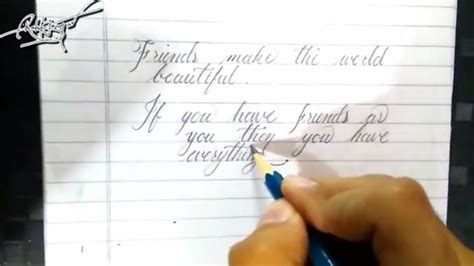 Friends make the world
beautiful.
If you have friends as
you then you have
everything